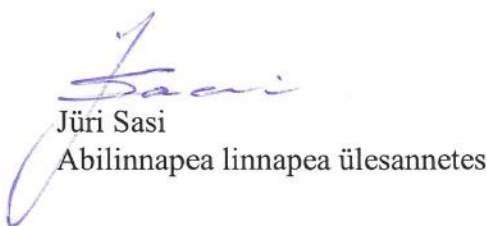 Jüri Sasi
Abilinnapea linnapea ülesannetes